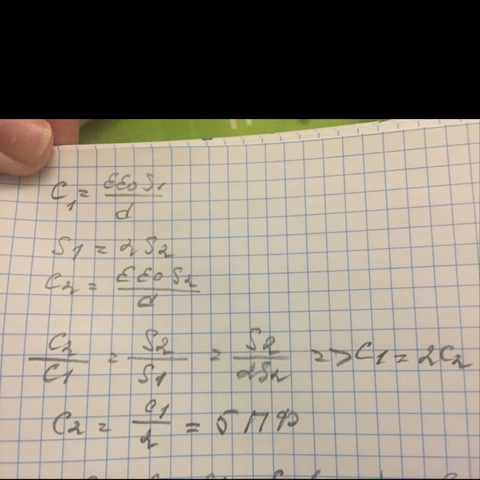 C₁ = εε₀S₁/d
S₁ = 2S₂
C₂ = εε₀S₂/d
C₂/C₁ = S₂/S₁ = S₂/2S₂ => C₁ = 2C₂
C₂ = C₁/2 = 5 ПФ